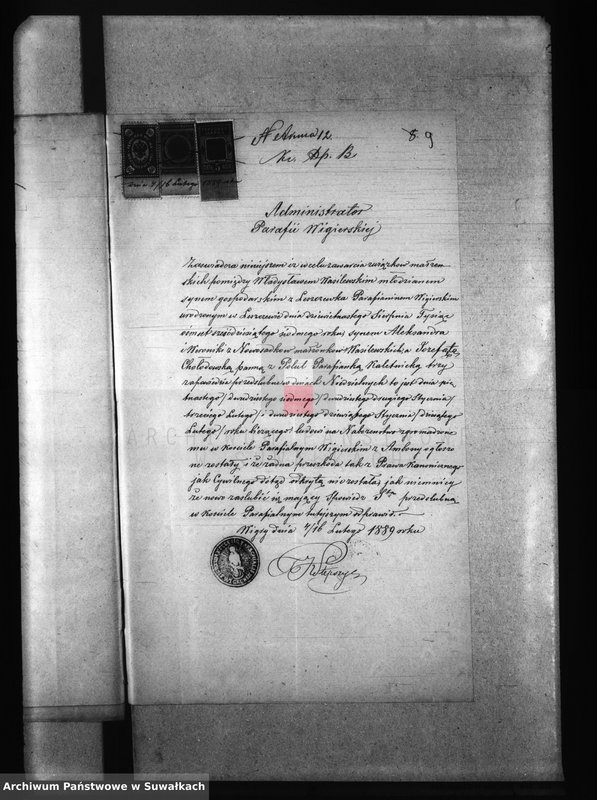 N Anexa 12.
8. 9
Kr. Dp. B
dnia 4/16 Lutego 1889 roku
Administrator
Parafii Wigierskiej
Zaświadcza niniejszem iż w celu zawarcia związków małżen-
skich pomiędzy Władysławem Wasilewskim młodzianem
synem gospodarskim z Leszczewka Parafianinem Wigierskim
urodzonym w Leszczewie dnia dziewiętnastego Sierpnia Tysiąc
ośmset sześćdziesiątego siódmego roku, synem Aleksandra
i Weroniki z Nowasadków małżonków Wasilewskich, a Józefatą
Chołodowską panną z Polul Parafianką Kaletnicką trzy
zapowiedzie przedślubne w dniach Niedzielnych to jest dnia pię-
tnastego/dwudziestego siódmego/dwudziestego drugiego Stycznia/
trzeciego Lutego/i dwudziestego dziewiątego Stycznia/dziesiątego
Lutego/roku bieżącego: ludowi na Nabożeństwo zgromadzone-
mu w Kościele Parafialnym Wigierskim z Ambony ogłoszo-
ne zostały i że żadna przeszkoda tak z Prawa Kanonicznego
jak Cywilnego dotąd odkrytą nie została, jak niemniej
że nowo zaślubić się mający Spowiedź Stą przedślubną
w Kościele Parafialnym tutejszym odprawił.
Wigry dnia 4/16 Lutego 1889 roku
Archiwum Państwowe w Suwałkach